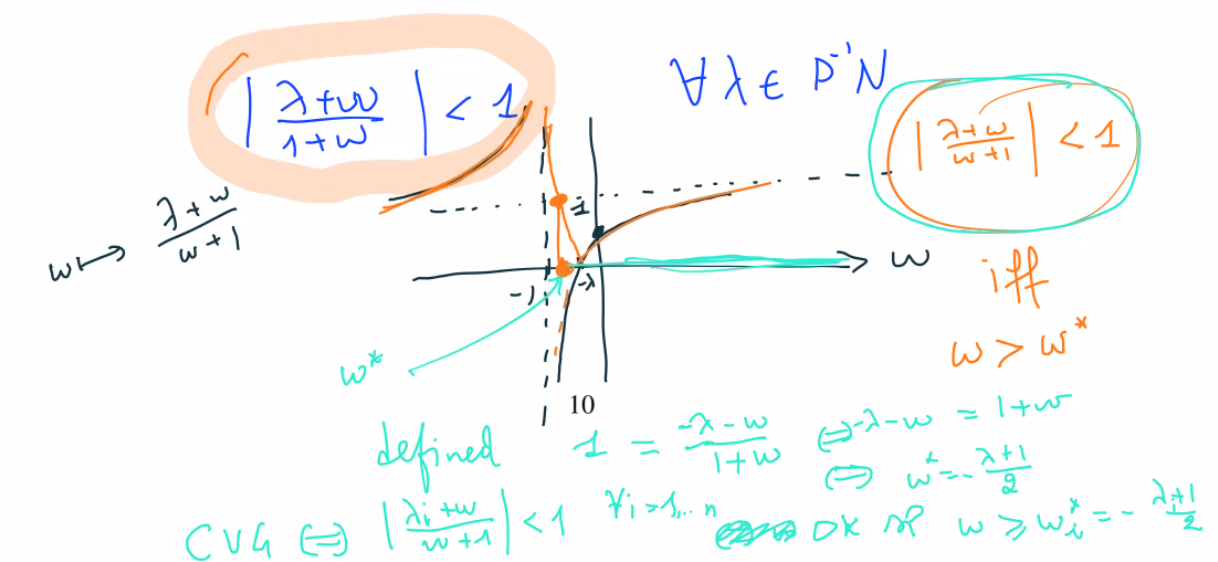 | λ+w / 1+w | < 1
∀ λ ∈ D⁻¹N
| λ+w / w+1 | < 1
w ↦ λ+w / w+1
1
w
-1
-λ
iff
w*
w > w*
10
defined 1 = -λ-w / 1+w ⇔ -λ-w = 1+w
⇔ w* = - λ+1 / 2
CVG ⇔ | λi+w / w+1 | < 1 ∀i=1,... n OK w ≥ wi* = - λi+1 / 2